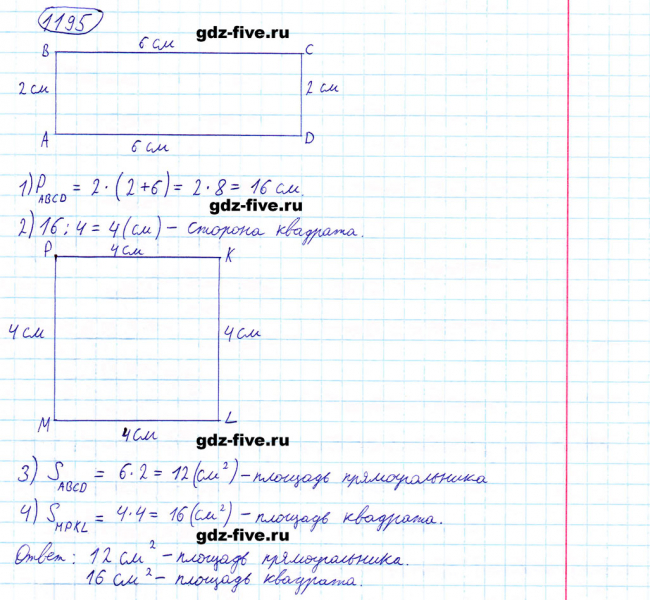 1195
gdz-five.ru
6 см
B C
2 см 2 см
A D
6 см
1) P ABCD = 2·(2+6) = 2·8 = 16 см.
gdz-five.ru
2) 16:4 = 4(см) – сторона квадрата.
P 4 см K
4 см 4 см
M L
4 см
gdz-five.ru
3) S ABCD = 6·2 = 12(см²) – площадь прямоугольника
4) S MPKL = 4·4 = 16(см²) – площадь квадрата.
gdz-five.ru
Ответ: 12 см² – площадь прямоугольника.
16 см² – площадь квадрата.